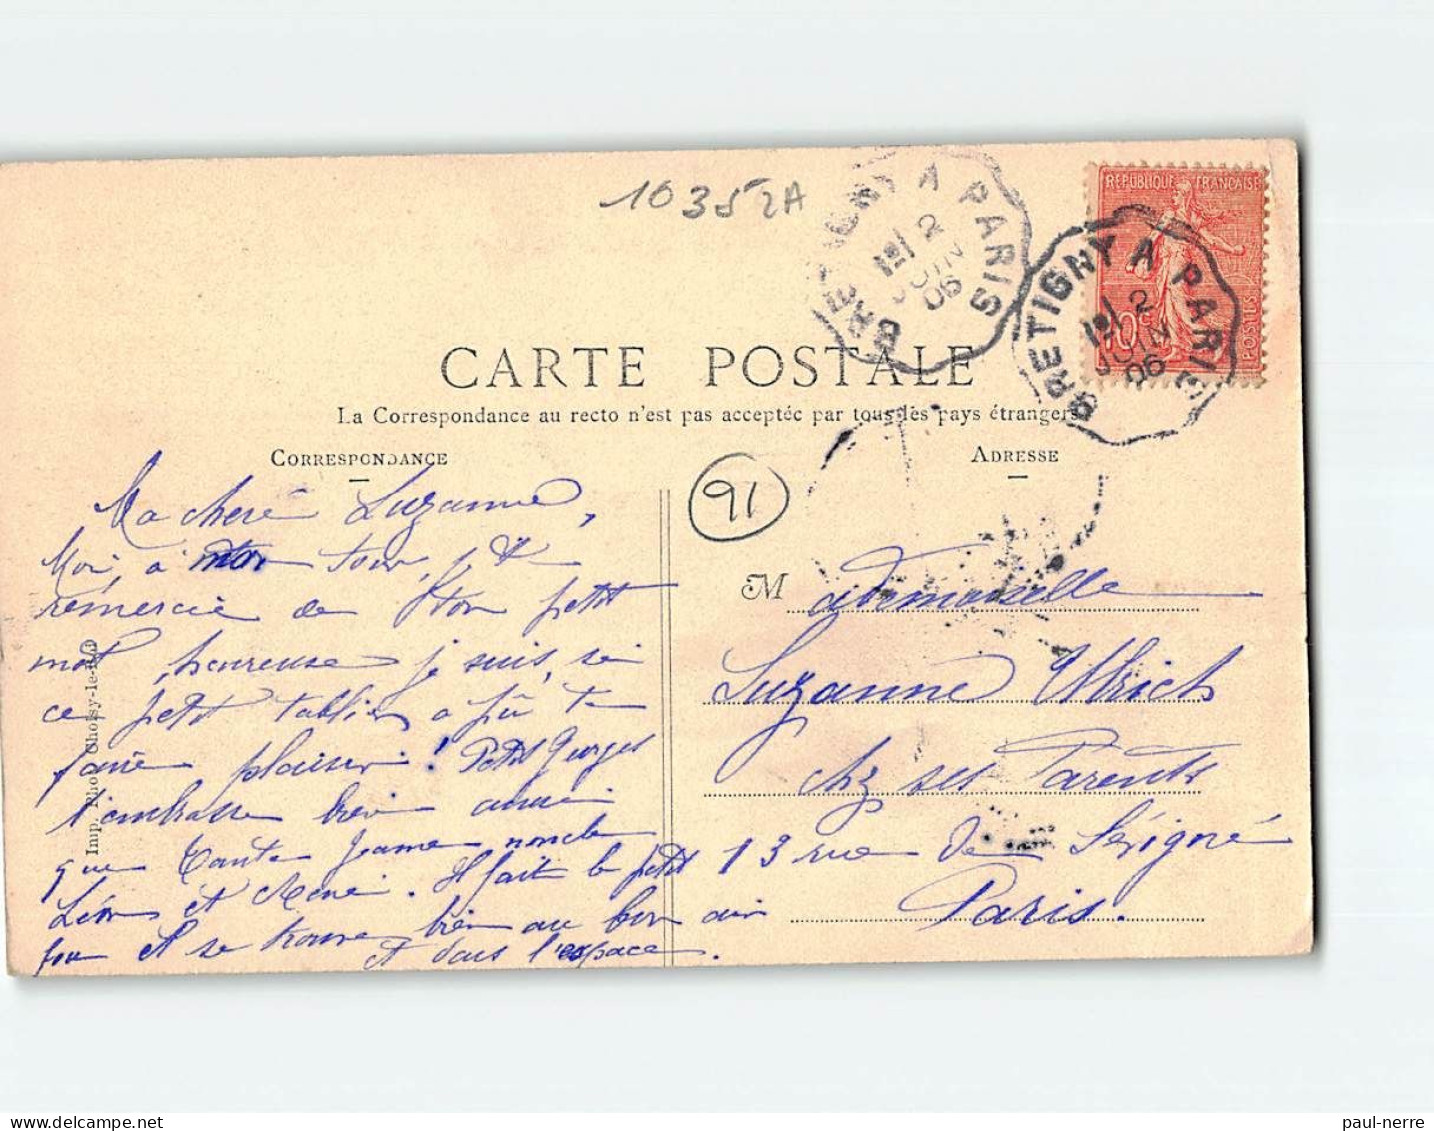 10352A
BRETIGNY A PARIS
1º/ 2
JUIN
06
REPUBLIQUE FRANÇAISE
10c
POSTES
BRETIGNY A PARIS
1º/ 2
JUIN
06
CARTE POSTALE
La Correspondance au recto n'est pas acceptée par tous les pays étrangers
CORRESPONDANCE
ADRESSE
91
Ma cheré Suzanne,
Moi, à mon tour, je te
remercie de ton petit
mot, heureuse je suis, si
ce petit tablier a pû te
faire plaisir! Petit Georges
t'embrasse bien ainsi
que Tante Jeanne, noncle
Léon et René. Il fait le petit
fou et se trouve bien au bon air
et dans l'espace.
Mademoiselle
Suzanne Ulrich
chz ses Parents
13 rue de Sévigné
Paris.
Imp. Phot. Choisy-le-Roi
paul-nerre